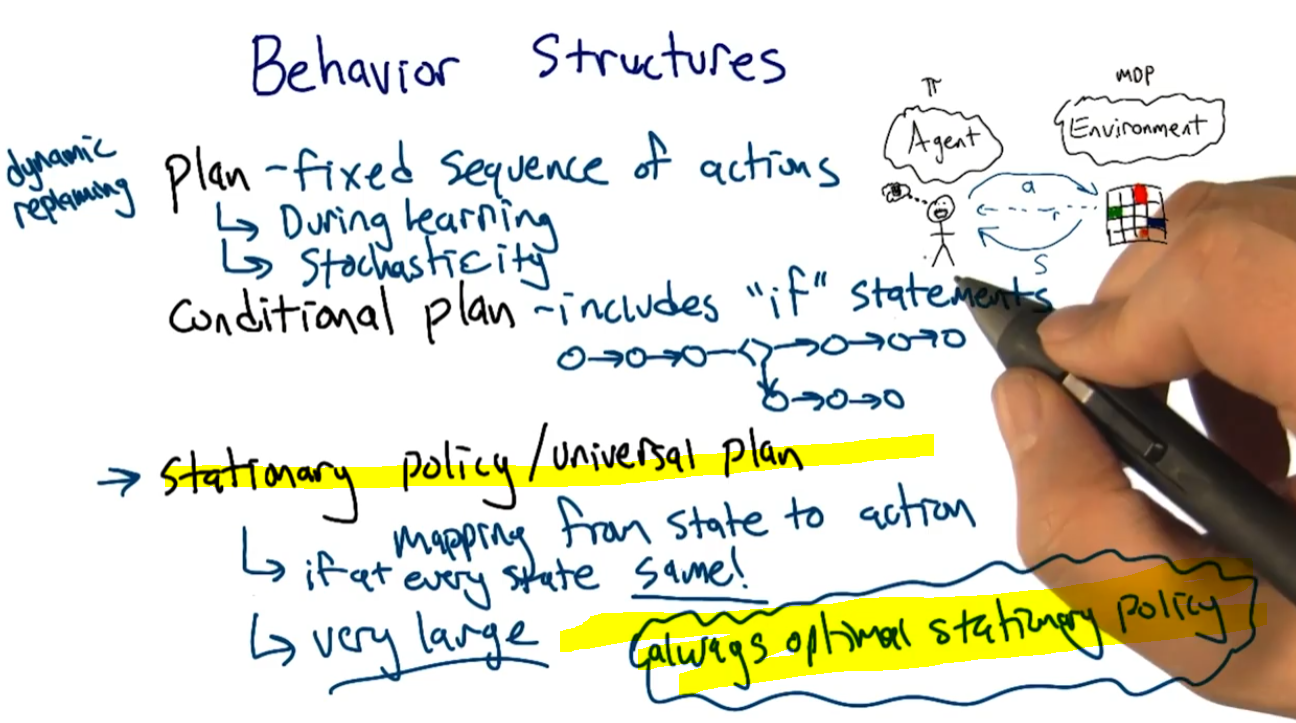 Behavior Structures
π
MDP
Agent
Environment
a
r
s
dynamic
replanning
Plan - fixed sequence of actions
↳ During learning
↳ Stochasticity
Conditional plan - includes "if" statements
→ Stationary policy / universal plan
mapping from state to action
↳ if at every state same!
↳ very large
always optimal stationary policy